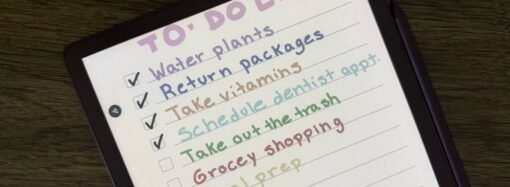 TO DO
Water plants
Return packages
Take vitamins
Schedule dentist appt.
Take out the trash
Grocey shopping
prep